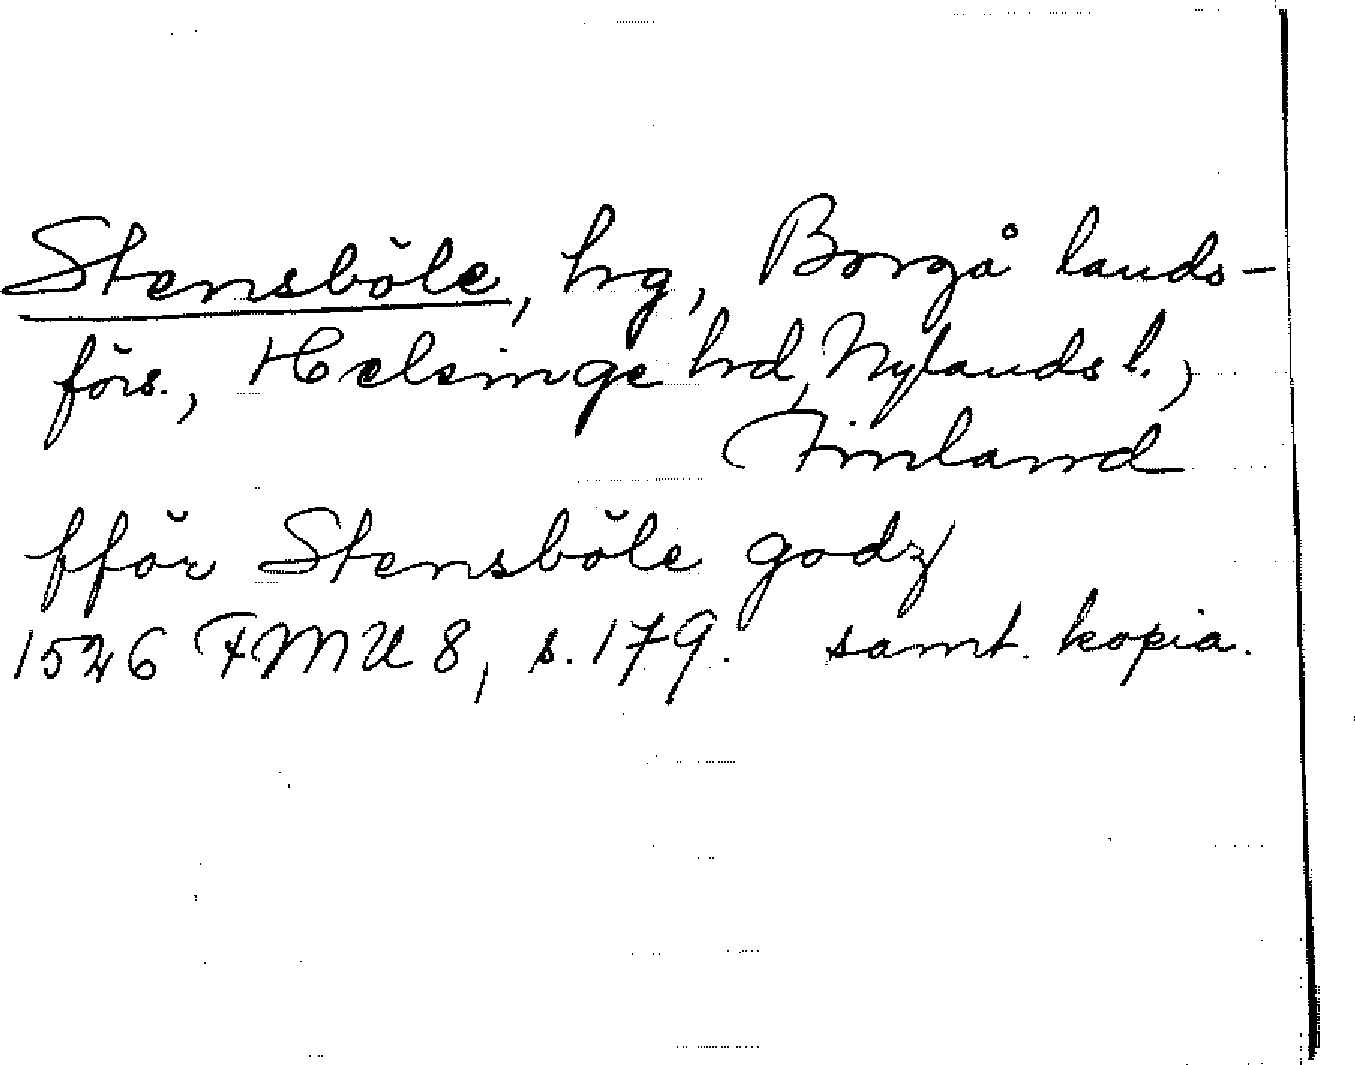 Stensböle, hrg, Borgå lands-
förs., Helsinge hrd, Nylands l.,
Finland
fför Stensböle godz
1526 FMU 8, s. 179. samt. kopia.